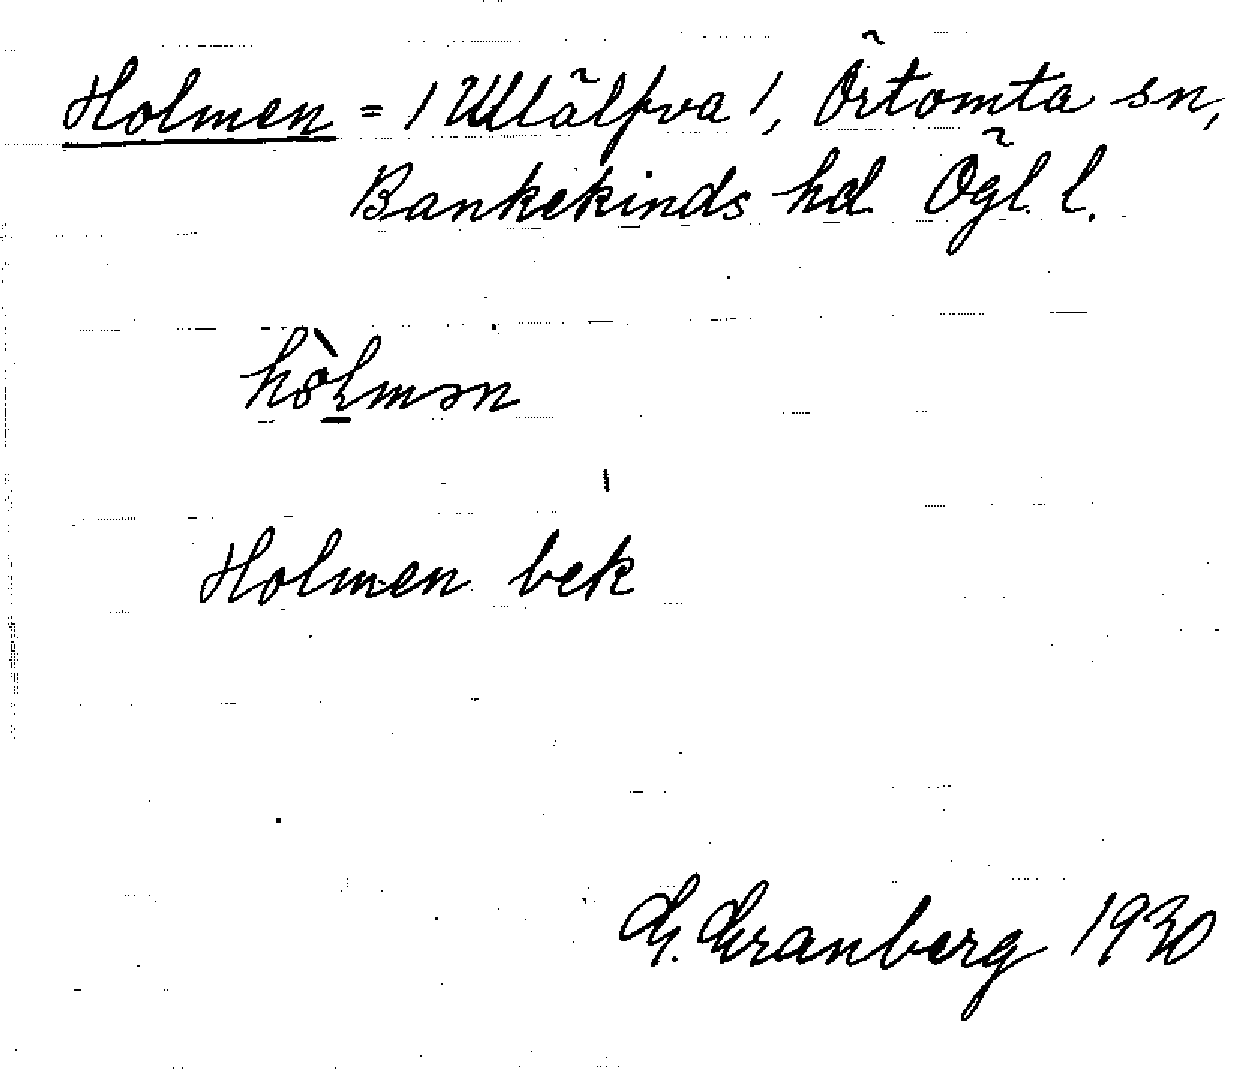 Holmen = / Ullälfva /, Örtomta sn,
Bankekinds hd Ögl. l.
hòlmən
Holmen bek
G. Granberg 1930